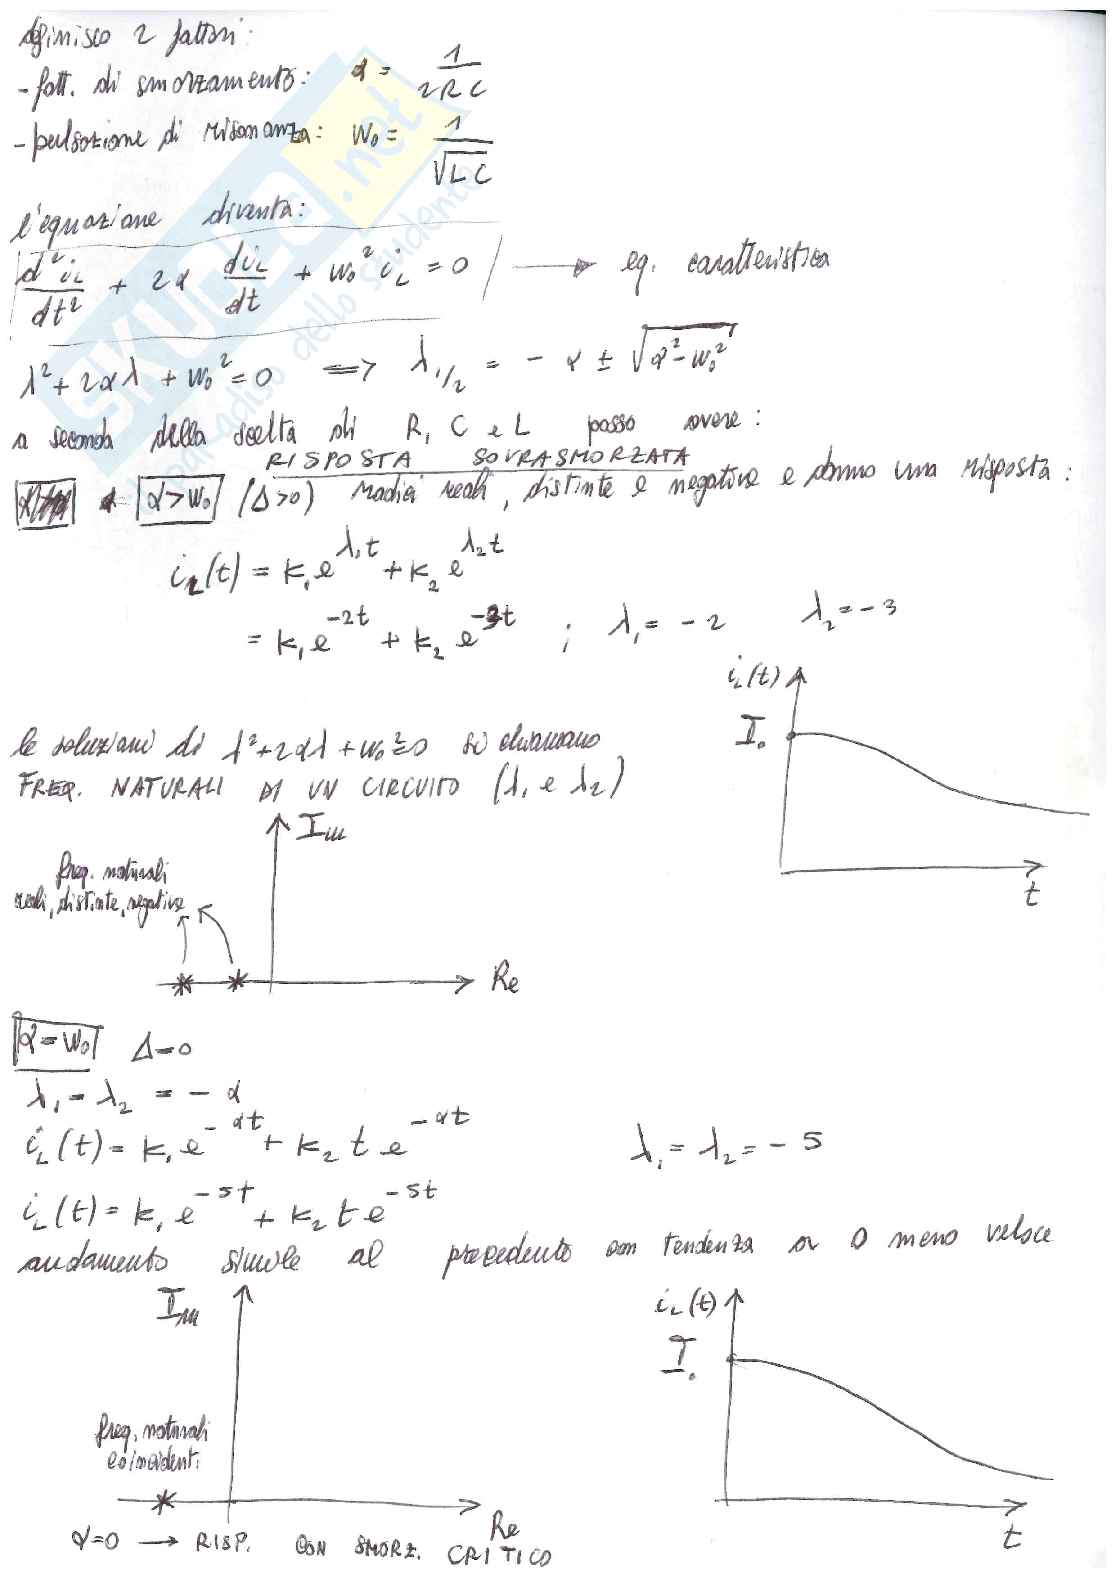 definisco 2 fattori:
- fatt. di smorzamento: α = 1/(2RC)
- pulsazione di risonanza: W₀ = 1/√(LC)
l'equazione diventa:
d²i_L/dt² + 2α di_L/dt + W₀² i_L = 0 → eq. caratteristica
λ² + 2αλ + W₀² = 0 ⟹ λ₁/₂ = - α ± √(α² - W₀²)
a seconda della scelta di R, C e L posso avere:
RISPOSTA SOVRASMORZATA
α > W₀ (Δ>0) radici reali, distinte e negative e danno una risposta:
i_L(t) = k₁e^(λ₁t) + k₂e^(λ₂t)
= k₁e^(-2t) + k₂e^(-3t) ; λ₁ = -2 λ₂ = -3
i_L(t)
I₀
t
le soluzioni di λ² + 2αλ + W₀² = 0 si chiamano
FREQ. NATURALI DI UN CIRCUITO (λ₁ e λ₂)
Im
freq. naturali
reali, distinte, negative
Re
α = W₀ Δ = 0
λ₁ = λ₂ = - α
i_L(t) = k₁e^(-αt) + k₂ t e^(-αt) λ₁ = λ₂ = -5
i_L(t) = k₁e^(-5t) + k₂ t e^(-5t)
andamento simile al precedente con tendenza a 0 meno veloce
Im
freq. naturali
coincidenti
Re
i_L(t)
I₀
t
α=0 → RISP. CON SMORZ. CRITICO
SKUOLA.net
il paradiso dello studente